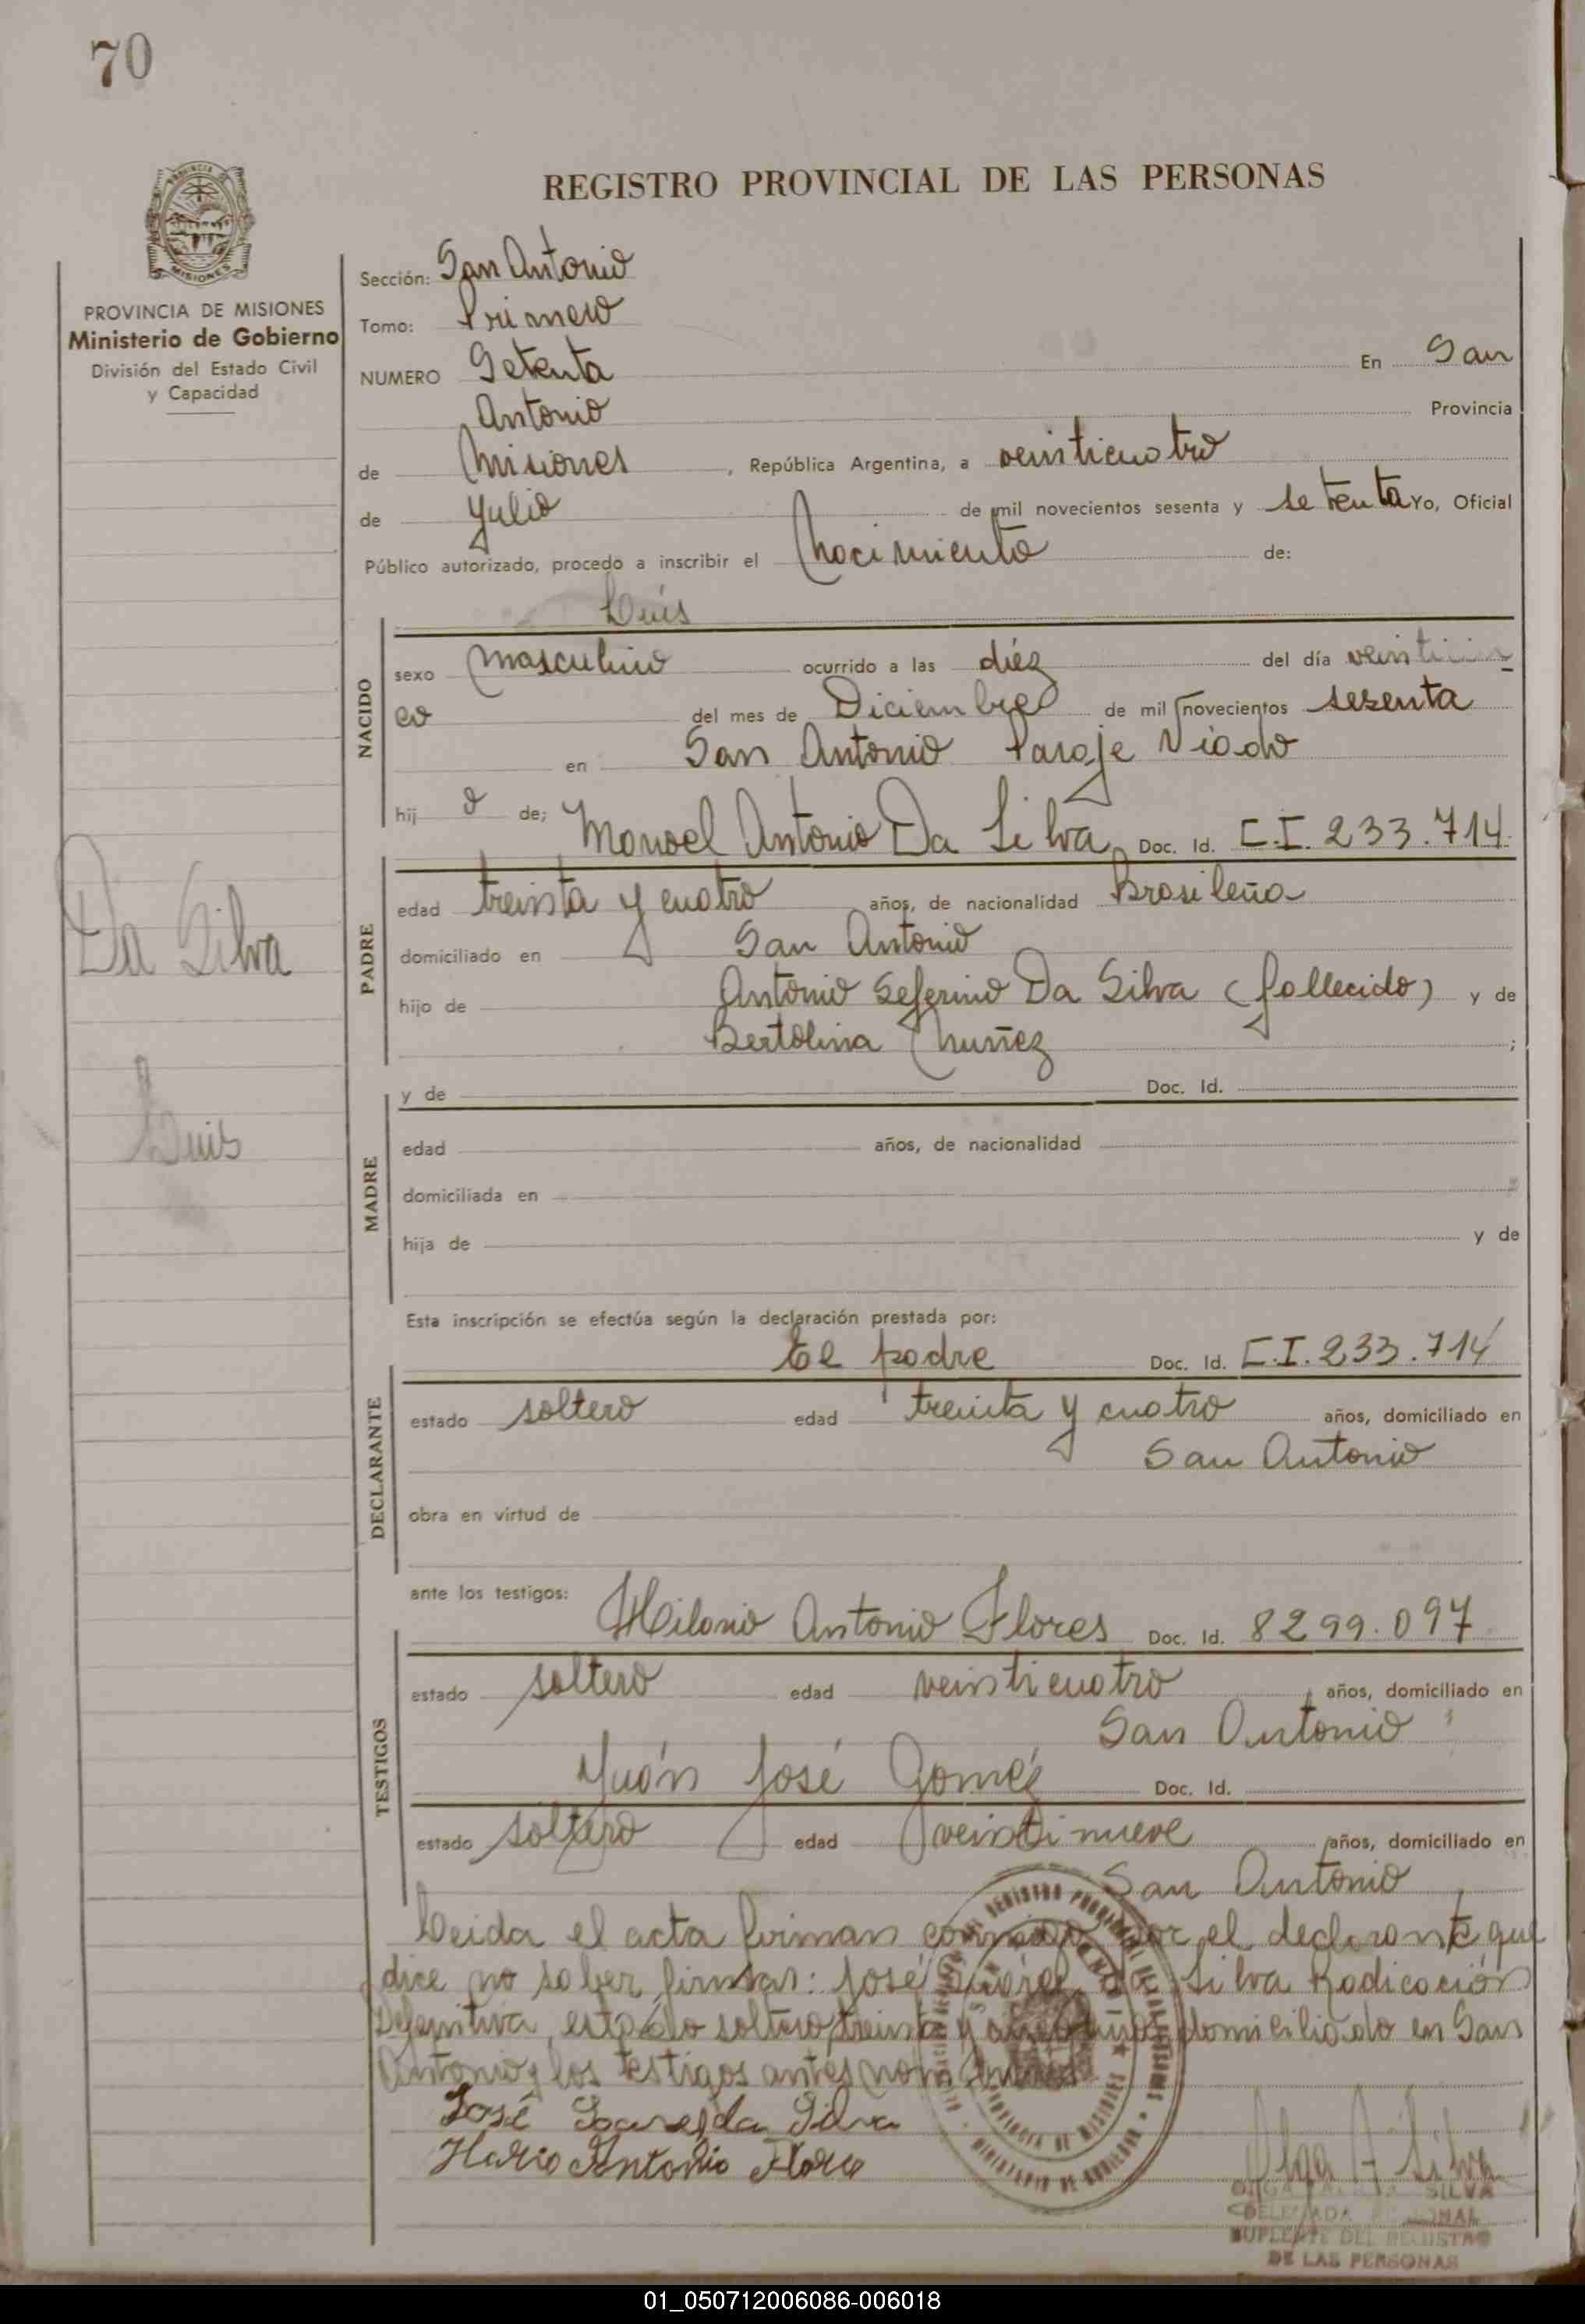 70
REGISTRO PROVINCIAL DE LAS PERSONAS
PROVINCIA DE
MISIONES
PROVINCIA DE MISIONES
Ministerio de Gobierno
División del Estado Civil
y Capacidad
Sección: San Antonio
Tomo: Primero
NUMERO Setenta En San
Antonio Provincia
de Misiones, República Argentina, a veinticuatro
de Julio de mil novecientos sesenta y setenta Yo, Oficial
Público autorizado, procedo a inscribir el Nacimiento de:
Luis
NACIDO
sexo masculino ocurrido a las diéz del día
co del mes de Diciembre de mil novecientos sesenta
en San Antonio Paraje Viado
hij o de; Manoel Antonio Da Silva Doc. Id. C.I. 233.714.
PADRE
edad treinta y cuatro años, de nacionalidad Brasileña
domiciliado en San Antonio
hijo de Antonio Seferino Da Silva (fallecido) y de
Bertolina Nuñez ;
Da Silva
Luis
y de Doc. Id.
MADRE
edad años, de nacionalidad
domiciliada en
hija de y de
Esta inscripción se efectúa según la declaración prestada por:
El padre Doc. Id. C.I. 233.714
DECLARANTE
estado soltero edad treinta y cuatro años, domiciliado en
San Antonio
obra en virtud de
ante los testigos:
Hilario Antonio Flores Doc. Id. 8299.097
TESTIGOS
estado soltero edad veinticuatro años, domiciliado en
San Antonio
Yuán José Goméz Doc. Id.
estado soltero edad veintinueve años, domiciliado en
San Antonio
Leida el acta firman conmigo por el declarante que
dice no saber firmar: José da Silva Radicación
Definitiva, estado soltero, treinta y domiciliado en San
Antonio y los testigos antes nombrados
José Soares da Silva
Ilario Antonio Flores
Olga A. Silva
OLGA SILVA
DELEGADA
SUPLENTE DEL REGISTRO
DE LAS PERSONAS
01_050712006086-006018